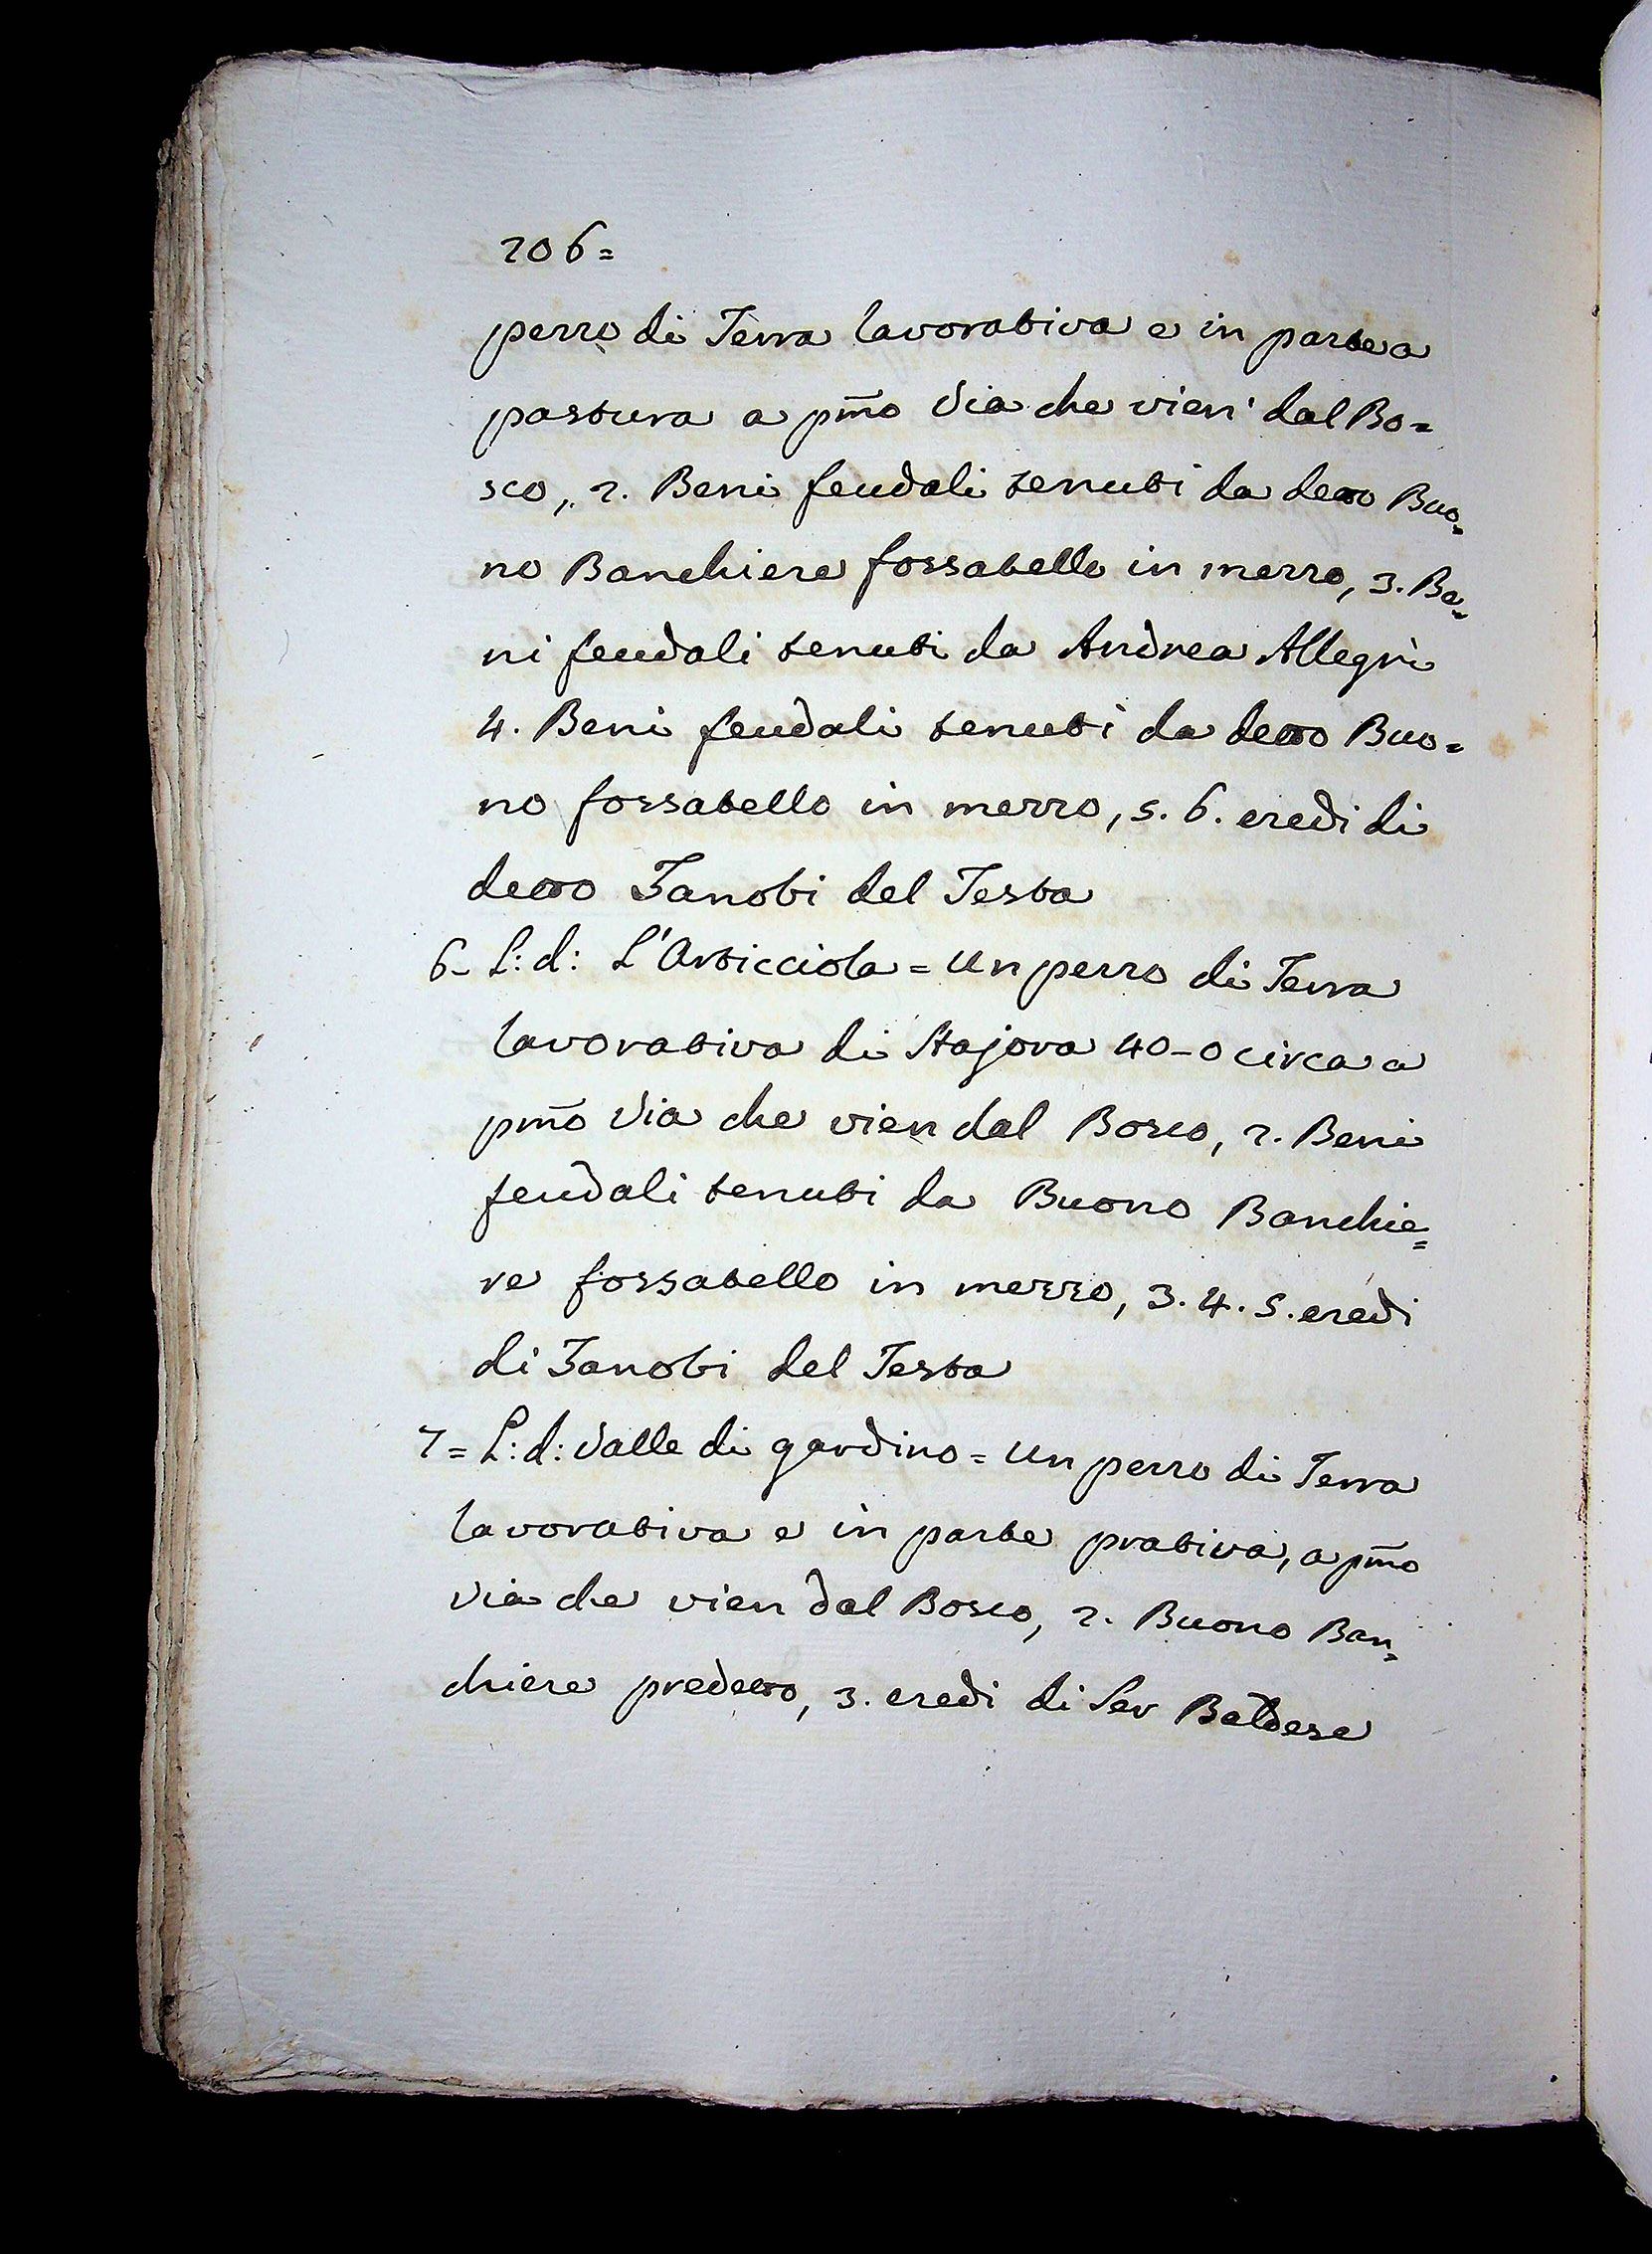 206=
pezzo di Terra lavorativa e in parte a
pastura a pm̃o Via che vien' dal Bo=
sco, 2. Beni feudali tenuti da detto Buo=
no Banchiere fossatello in mezzo, 3. Be=
ni feudali tenuti da Andrea Allegri
4. Beni feudali tenuti da detto Buo=
no fossatello in mezzo, 5. 6. eredi di
detto Zanobi del Testa
6- L: d: L'Orticciola = Un pezzo di Terra
lavorativa di Stajora 40-0 circa a
pm̃o Via che vien dal Bosco, 2. Beni
feudali tenuti da Buono Banchie=
re fossatello in mezzo, 3. 4. 5. eredi
di Zanobi del Testa
7= L: d: Valle di gardino = Un pezzo di Terra
lavorativa e in parte prativa, a pm̃o
Via che vien dal Bosco, 2. Buono Ban=
chiere predetto, 3. eredi di Ser Baldese